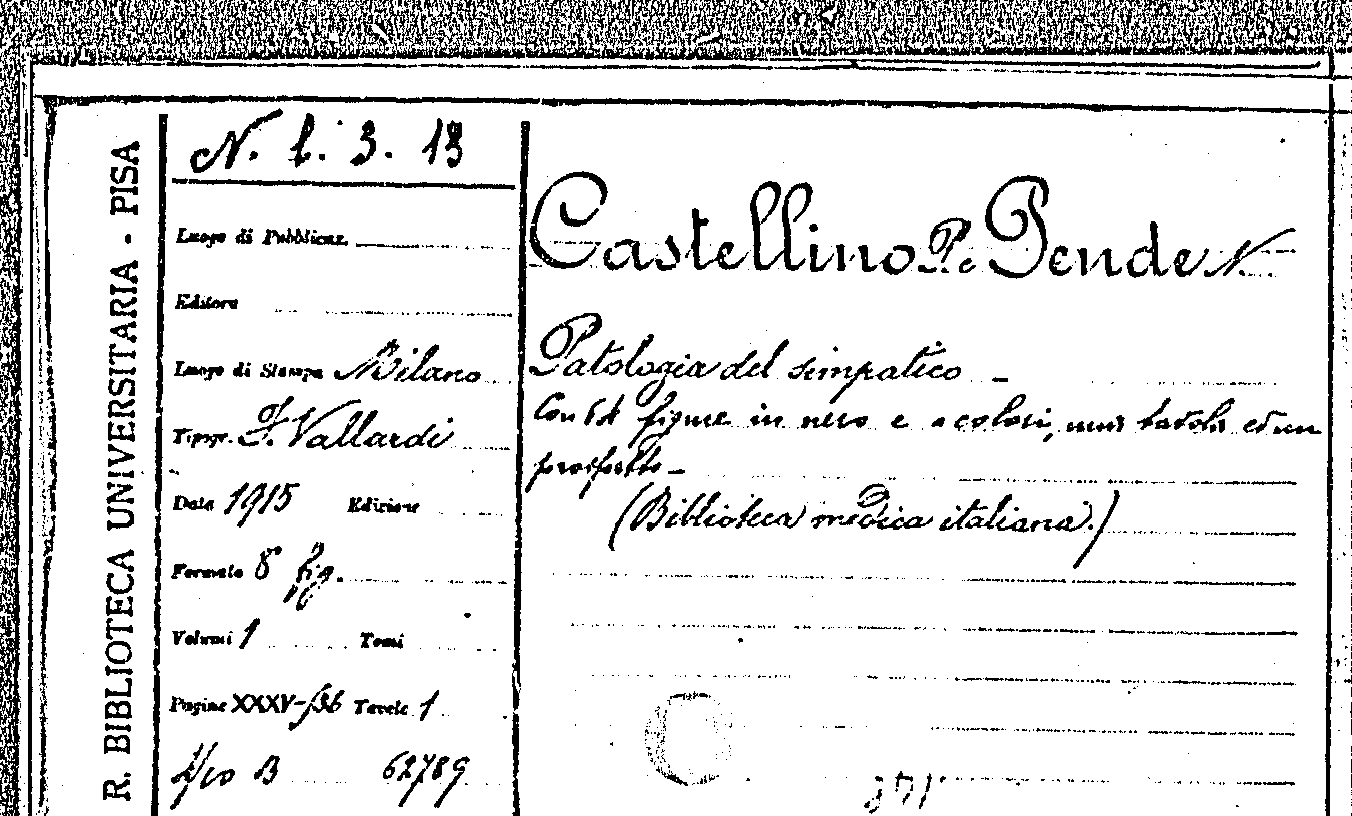 R. BIBLIOTECA UNIVERSITARIA - PISA
N. l. 3. 13
Luogo di Pubblicaz.
Editore
Luogo di Stampa Milano
Tipogr. F. Vallardi
Data 1915 Edizione
Formato 8° fig.
Volumi 1 Tomi
Pagine XXXV-536 Tavole 1
B 62789
Castellino P. e Pende N
Patologia del simpatico –
Con 54 figure in nero e a colori, una tavola ed un
prospetto –
(Biblioteca medica italiana.)
C